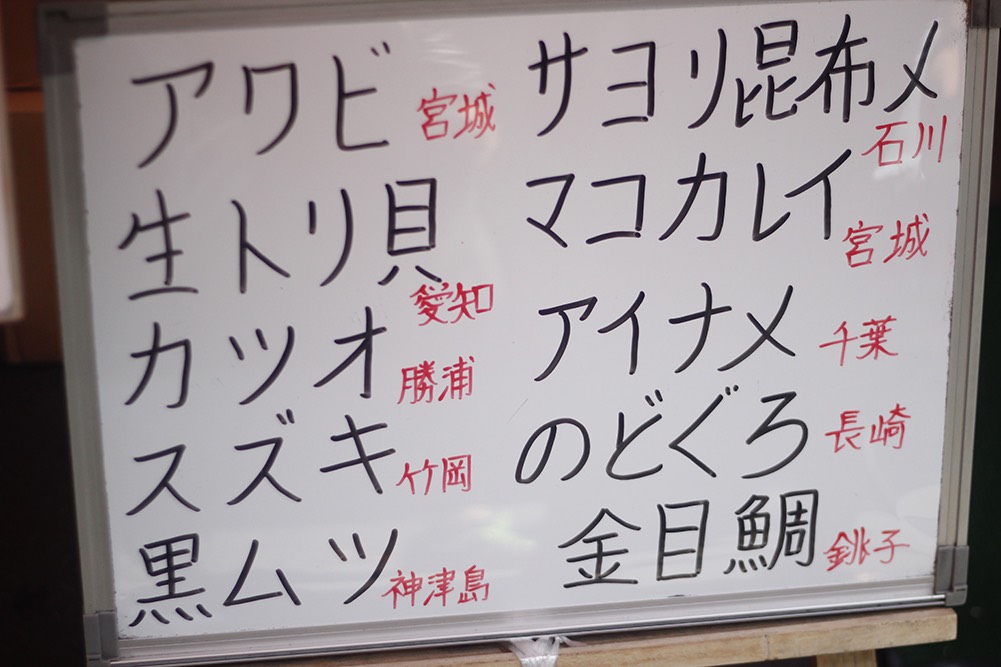 アワビ 宮城
生トリ貝 愛知
カツオ 勝浦
スズキ 竹岡
黒ムツ 神津島
サヨリ昆布メ 石川
マコカレイ 宮城
アイナメ 千葉
のどぐろ 長崎
金目鯛 銚子